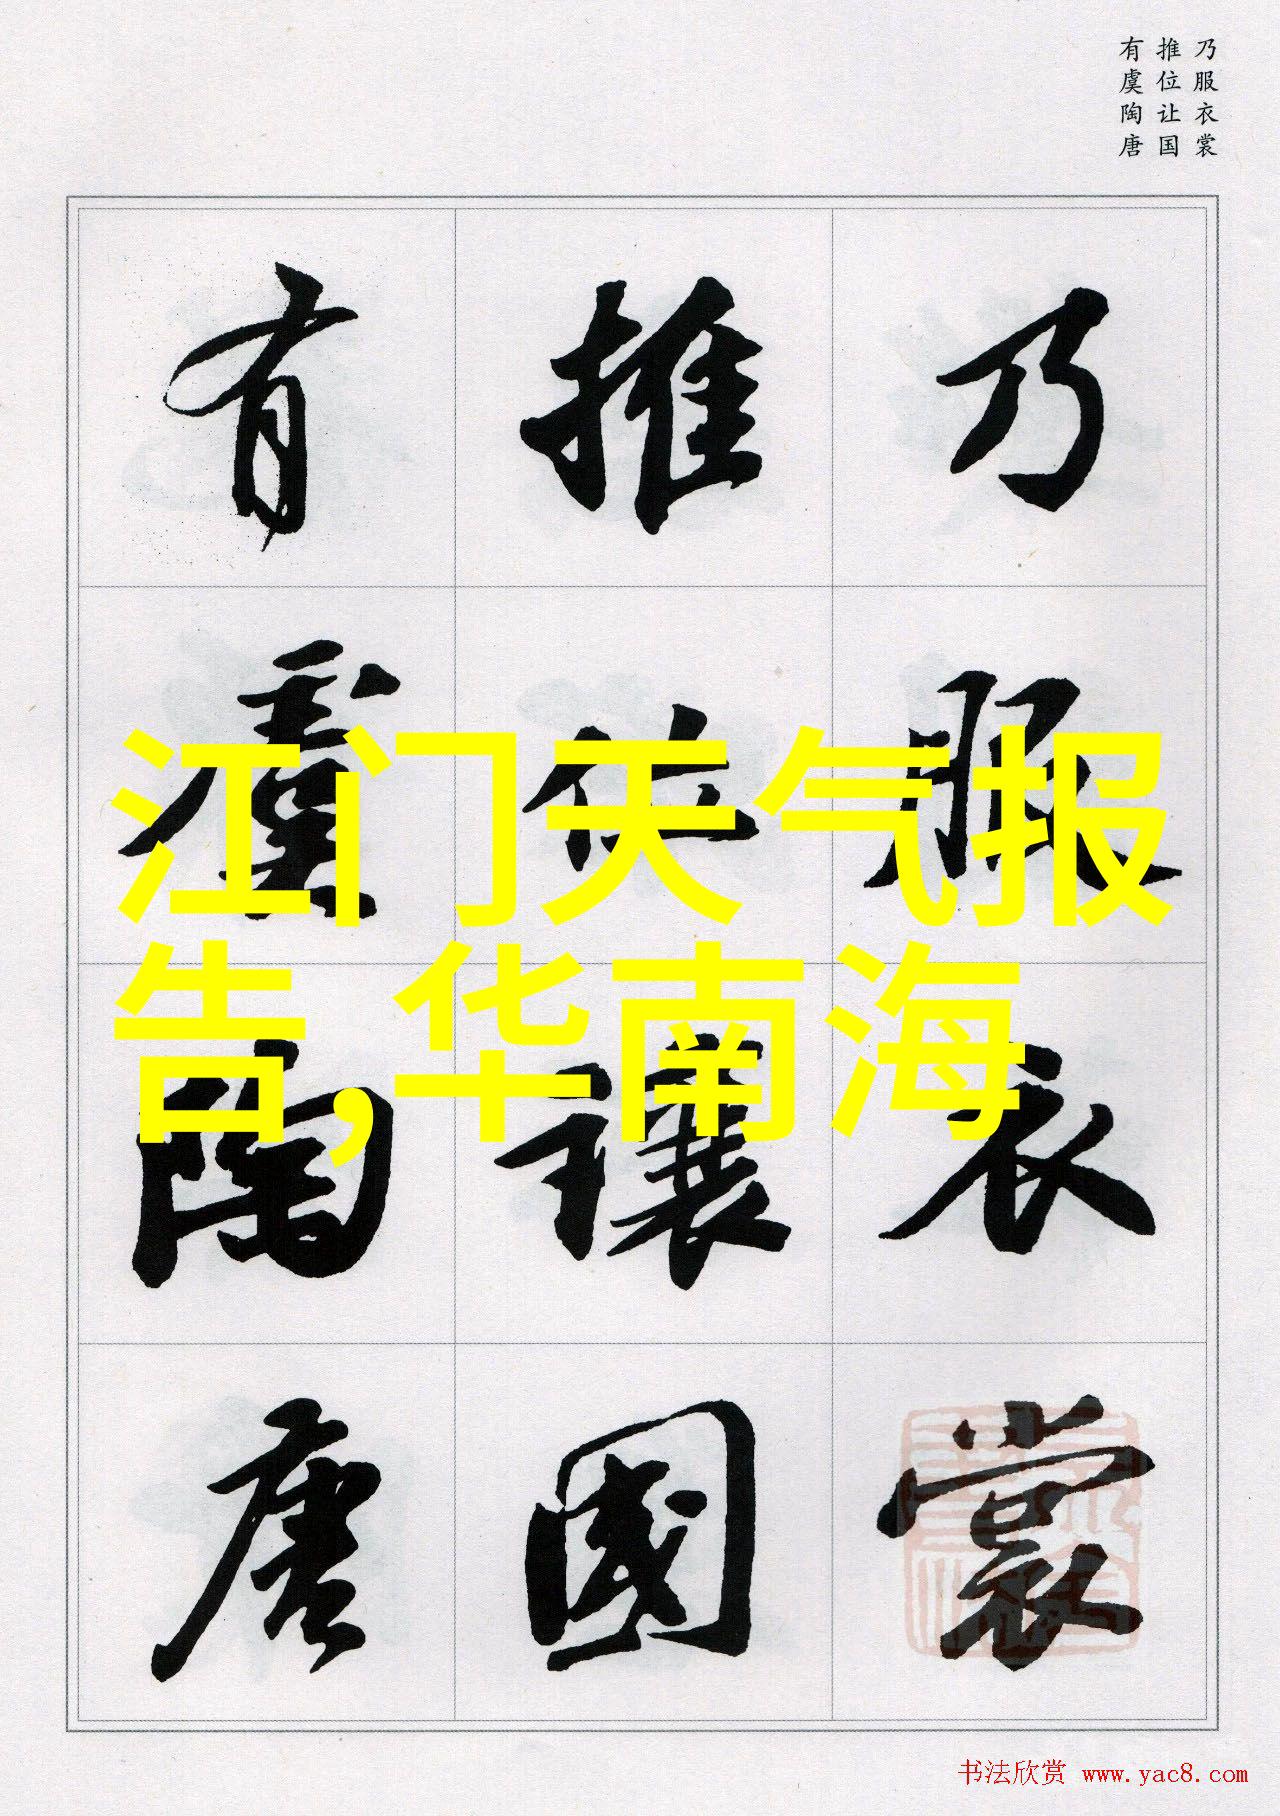 乃服衣裳
推位让国
有虞陶唐
乃服衣裳
推位讓國
有虞陶唐
江门天气报
告,华南海
书法欣赏 www.yac8.com